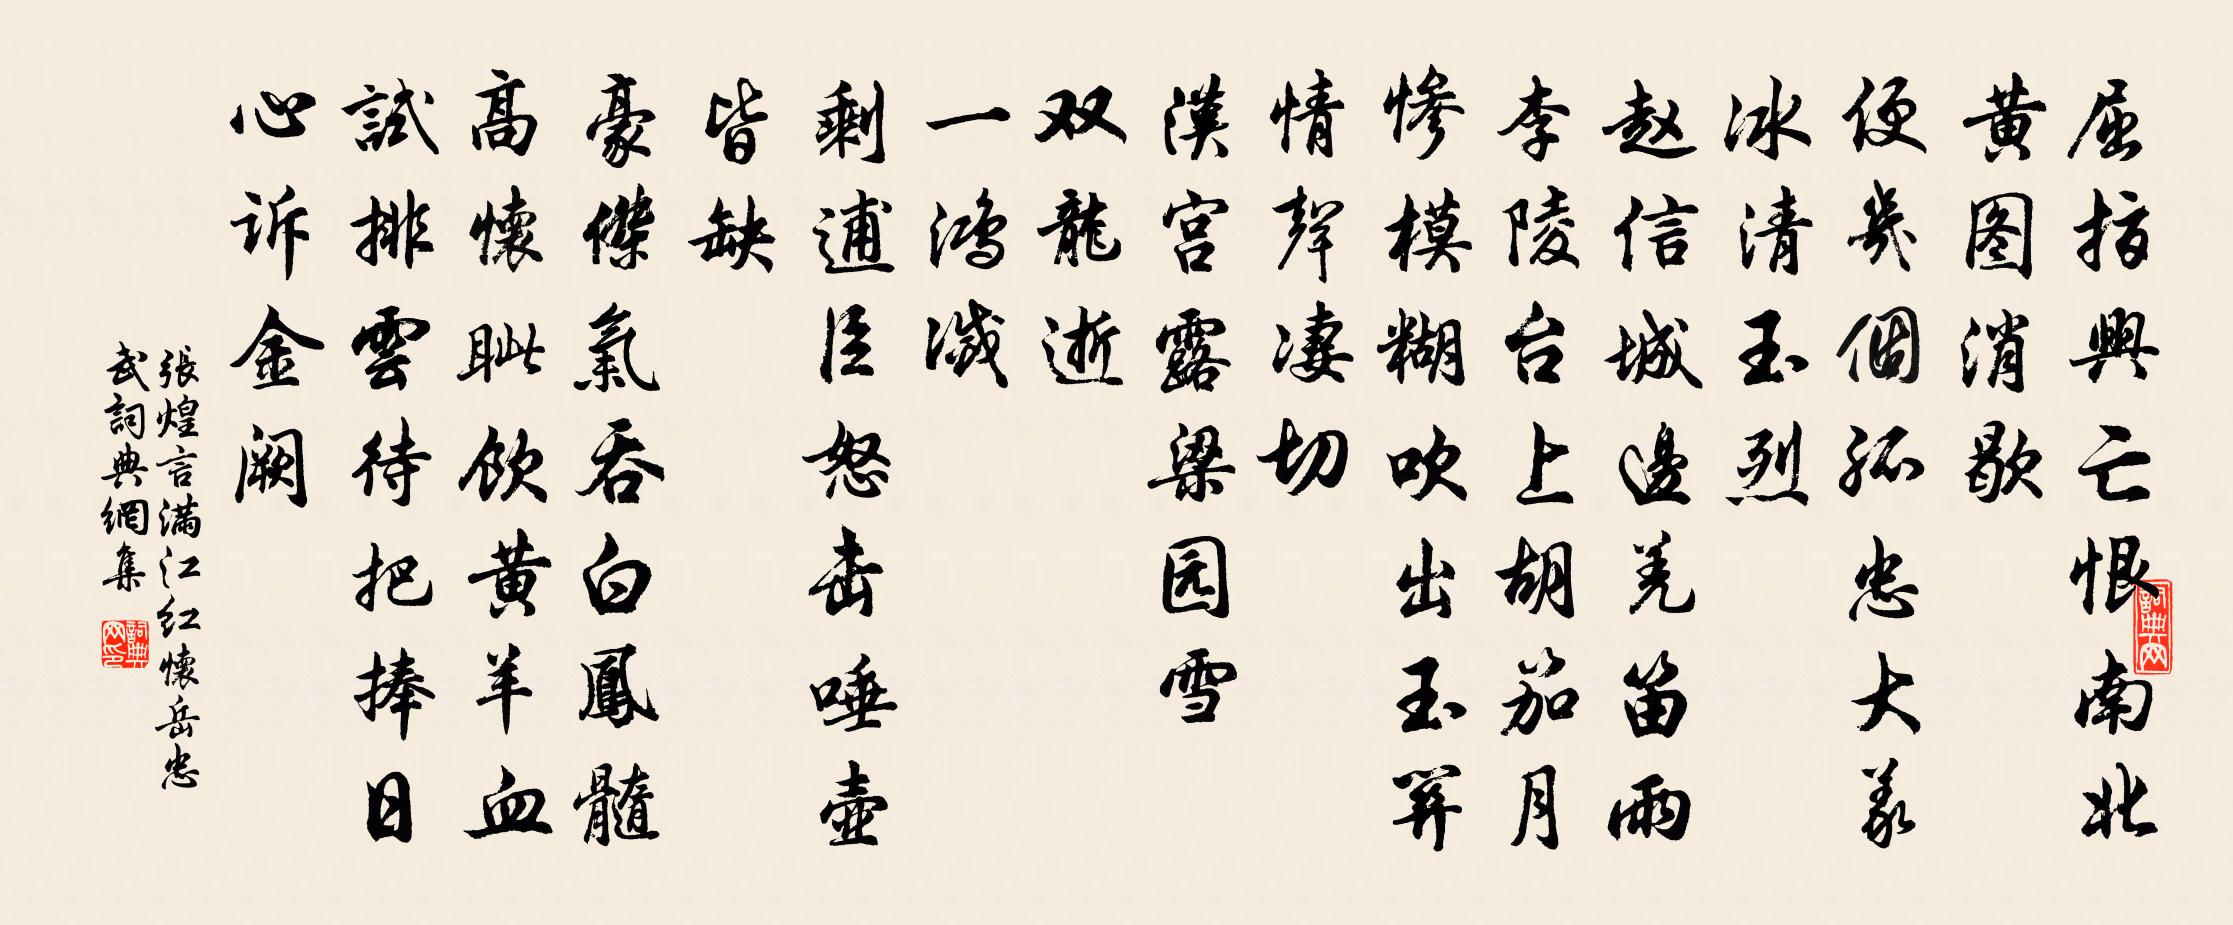 屈指興亡恨南北
黄图消歇
便幾個孤忠大義
冰清玉烈
赵信城邊羌笛雨
李陵台上胡笳月
惨模糊吹出玉關
情聲凄切
漢宫露梁园雪
双龍逝
一鴻滅
剩逋臣怒击唾壺
皆缺
豪傑氣吞白鳳髓
高懷眦飲黄羊血
試排雲待把捧日
心诉金阙
張煌言满江红懷岳忠
武詞典網集
詞典网
詞典网印